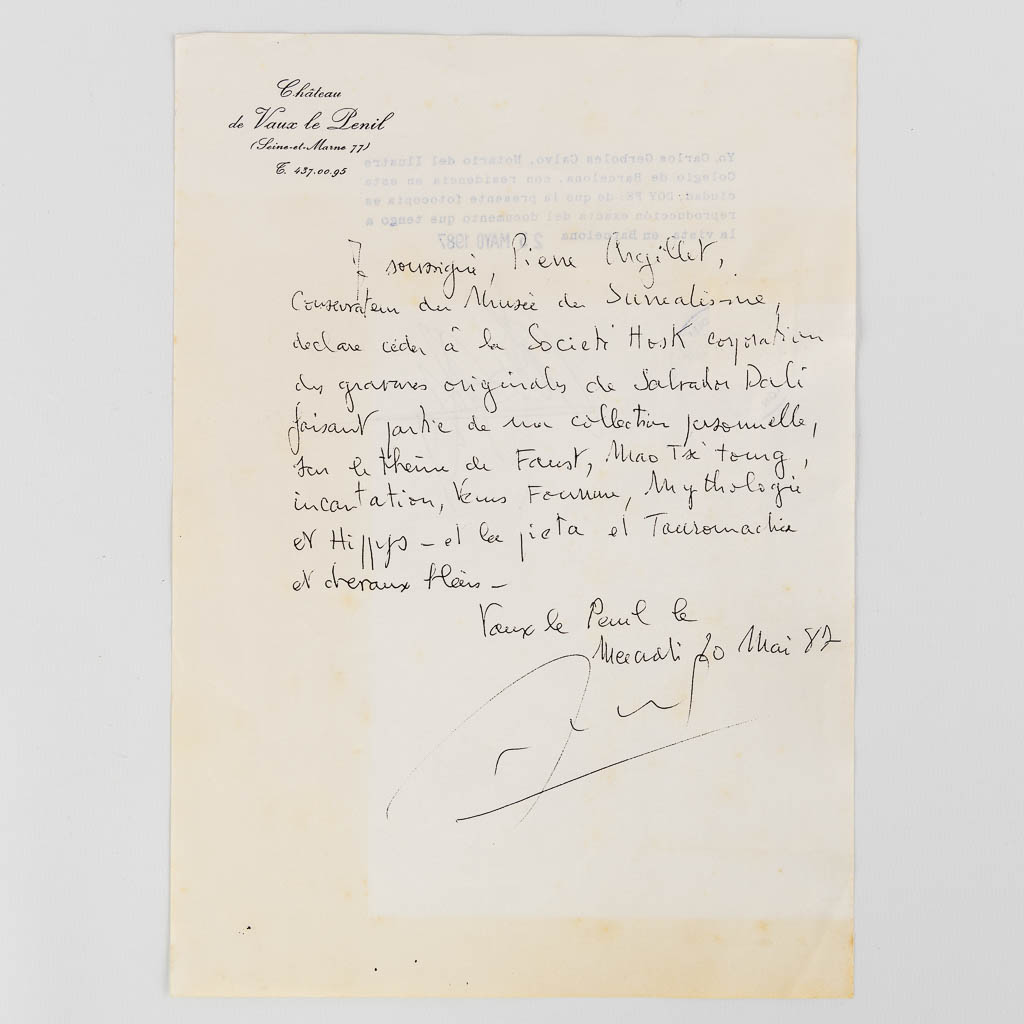 Château
de Vaux le Penil
(Seine-et-Marne 77)
T. 437.00.95
Yo, Carlos Gerboles Calvo, Notario del Ilustre
Colegio de Barcelona, con residencia en esta
ciudad, DOY FE: de que la presente fotocopia es
reproducción exacta del documento que tengo a
la vista, en Barcelona
MAYO 1987
Je soussigné, Pierre Argillet,
Conservateur du Musée du Surréalisme,
declare céder à la Societé Hosk corporation
des gravures originales de Salvador Dali
faisant partie de ma collection personnelle,
sur le thème de Faust, Mao Tsé toung,
incantation, Venus Fourrure, Mythologie
et Hippys - et la pieta et Tauromachie
et chevaux
Vaux le Penil le
Mercredi 20 Mai 87